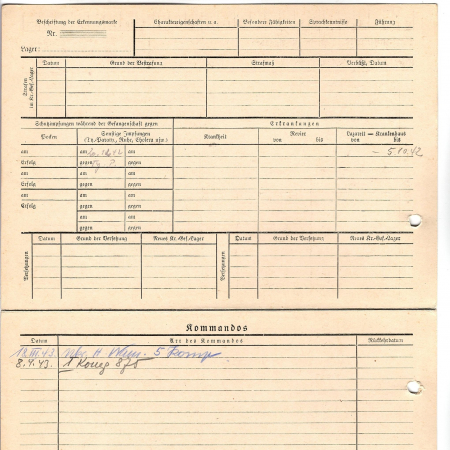 Beschriftung der Erkennungsmarke
Nr.
Lager:
Charaktereigenschaften u. a.
Besondere Fähigkeiten
Sprachkenntnisse
Führung
Strafen im Kr.-Gef.-Lager
Datum Grund der Bestrafung Strafmaß Verbüßt, Datum
Schutzimpfungen während der Gefangenschaft gegen
Erkrankungen
Pocken
Sonstige Impfungen
(Ty.-Paraty., Ruhr, Cholera usw.)
Krankheit
Revier
von bis
Lazarett — Krankenhaus
von bis
am am am
- 5.10.42
Erfolg gegen gegen
am am am
Erfolg gegen gegen
am am am
Erfolg gegen gegen
am am
gegen gegen
am am
gegen gegen
Versetzungen
Datum Grund der Versetzung Neues Kr.-Gef.-Lager
Versetzungen
Datum Grund der Versetzung Neues Kr.-Gef.-Lager
Kommandos
Datum Art des Kommandos Rückkehrdatum
18.III.43.
8.4.43.